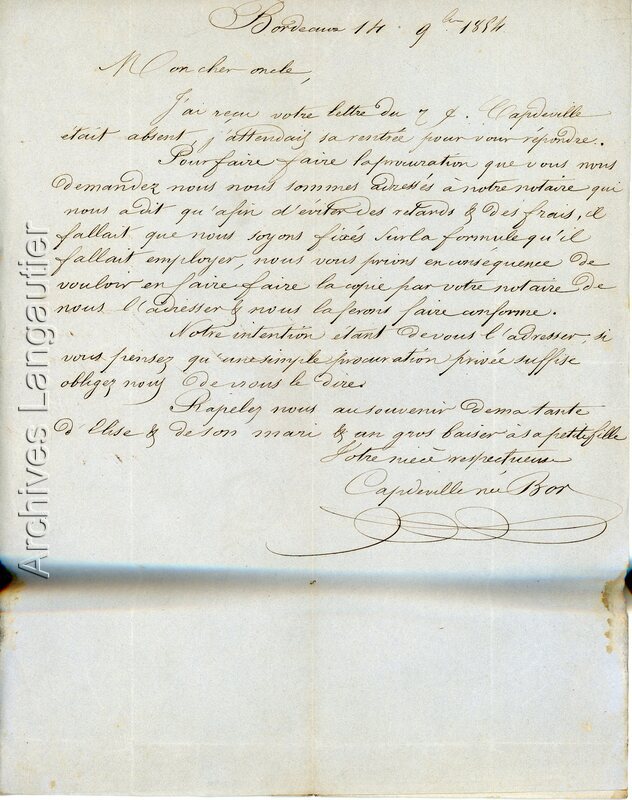 Bordeaux 14 9bre 1854
Mon cher oncle,
J'ai reçu votre lettre du 7 ct. Capdeville
était absent, j'attendais sa rentrée pour vous répondre.
Pour faire faire la procuration que vous nous
demandez nous nous sommes adressés à notre notaire qui
nous a dit qu'afin d'éviter des retards & des frais, il
fallait que nous soyons fixés sur la formule qu'il
fallait employer, nous vous prions en consequence de
vouloir en faire faire la copie par votre notaire de
nous l'adresser & nous la ferons faire conforme.
Notre intention étant de vous l'adresser, si
vous pensez qu'une simple procuration privée suffise
obligez nous de nous le dire.
Rapelez nous au souvenir de ma tante
d'Elise & de son mari & un gros baiser à sa petite fille
Votre niece respectueuse
Capdeville née Bor
Archives Langautier